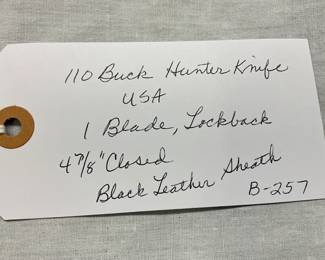 110 Buck Hunter Knife
USA
1 Blade, Lockback
4 7/8" Closed
Black Leather Sheath
B-257